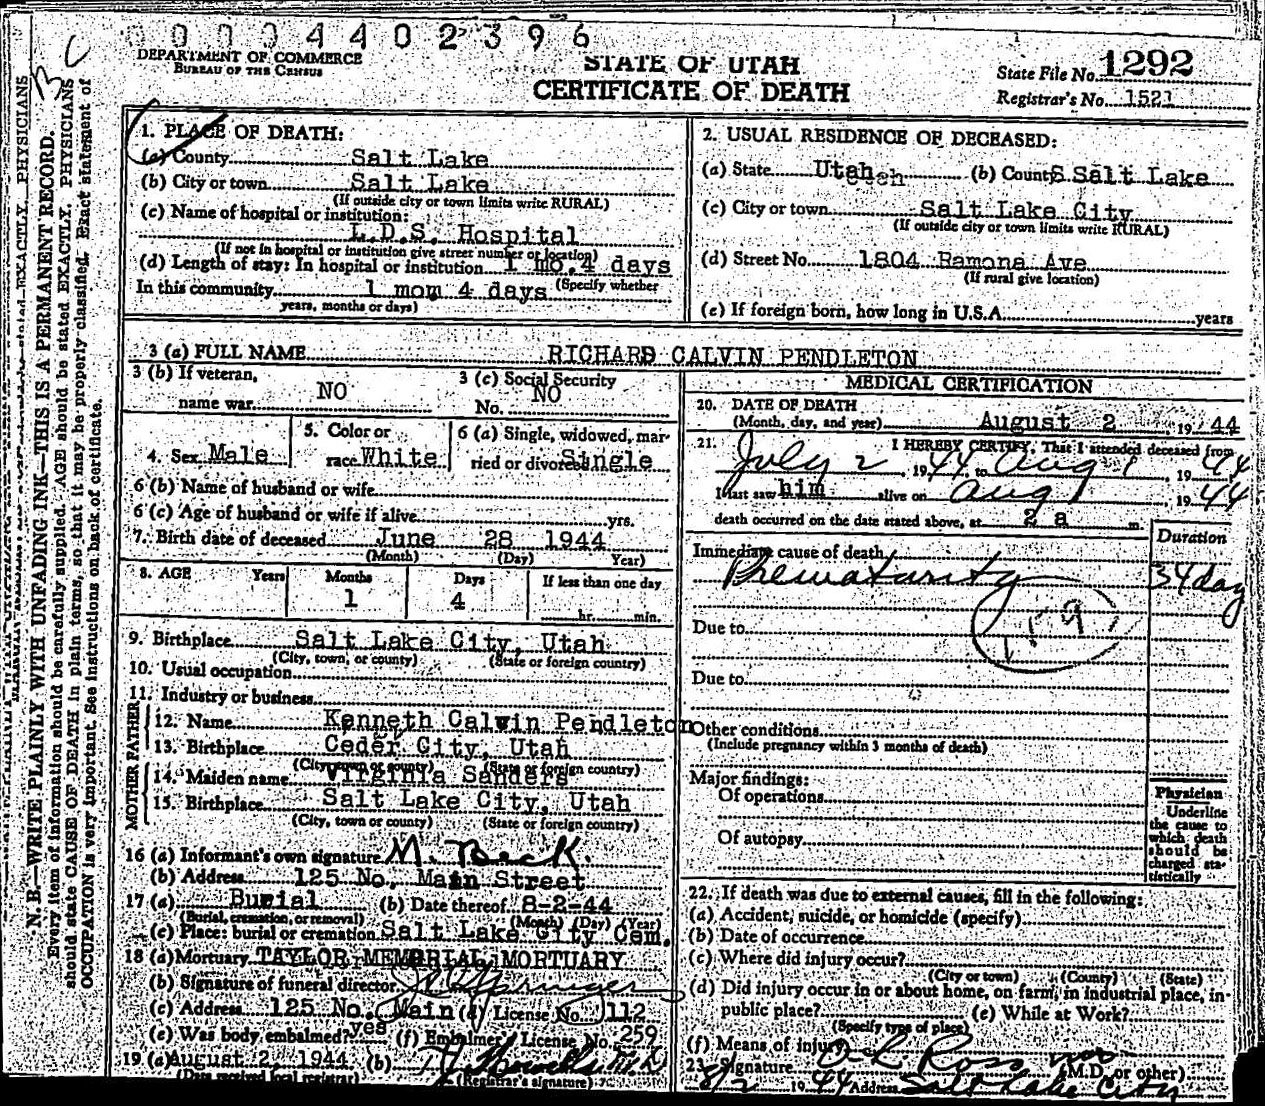 0 0 0 4 4 0 2 3 9 6
DEPARTMENT OF COMMERCE
BUREAU OF THE CENSUS
STATE OF UTAH
CERTIFICATE OF DEATH
State File No. 1292
Registrar's No. 1521
N. B.—WRITE PLAINLY WITH UNFADING INK—THIS IS A PERMANENT RECORD.
Every item of information should be carefully supplied. AGE should be stated EXACTLY. PHYSICIANS
should state CAUSE OF DEATH in plain terms, so that it may be properly classified. Exact statement of
OCCUPATION is very important. See instructions on back of certificate.
1. PLACE OF DEATH:
(a) County Salt Lake
(b) City or town Salt Lake
(If outside city or town limits write RURAL)
(c) Name of hospital or institution:
L.D.S. Hospital
(If not in hospital or institution give street number or location)
(d) Length of stay: In hospital or institution 1 mo. 4 days
(Specify whether
In this community 1 mom 4 days
years, months or days)
2. USUAL RESIDENCE OF DECEASED:
(a) State Utah (b) County Salt Lake
(c) City or town Salt Lake City
(If outside city or town limits write RURAL)
(d) Street No. 1804 Ramona Ave
(If rural give location)
(e) If foreign born, how long in U.S.A. years
3 (a) FULL NAME RICHARD CALVIN PENDLETON
3 (b) If veteran, name war NO
3 (c) Social Security No. NO
4. Sex Male
5. Color or race White
6 (a) Single, widowed, married or divorced Single
6 (b) Name of husband or wife
6 (c) Age of husband or wife if alive yrs.
7. Birth date of deceased June 28 1944
(Month) (Day) Year)
8. AGE Years Months Days If less than one day
1 4 hr. min.
9. Birthplace Salt Lake City, Utah
(City, town, or county) (State or foreign country)
10. Usual occupation
11. Industry or business
FATHER
12. Name Kenneth Calvin Pendleton
13. Birthplace Ceder City, Utah
(City, town or county) (State or foreign country)
MOTHER
14. Maiden name Virginia Sanders
15. Birthplace Salt Lake City, Utah
(City, town or county) (State or foreign country)
16 (a) Informant's own signature M. Beck.
(b) Address 125 No. Main Street
17 (a) Burial (b) Date thereof 8-2-44
(Burial, cremation, or removal) (Month) (Day) (Year)
(c) Place: burial or cremation Salt Lake City Cem.
18 (a) Mortuary TAYLOR MEMORIAL MORTUARY
(b) Signature of funeral director
(c) Address 125 No. Main (d) License No. 112
(e) Was body embalmed? yes (f) Embalmer License No. 259
19 (a) August 2, 1944 (b)
(Date received local registrar) (Registrar's signature)
MEDICAL CERTIFICATION
20. DATE OF DEATH
(Month, day, and year) August 2, 1944
21. I HEREBY CERTIFY, That I attended deceased from
July 2, 1944 to Aug 1, 1944
I last saw him alive on Aug 1, 1944
death occurred on the date stated above, at 2 a m.
Duration
Immediate cause of death
Prematurity 34 day
159
Due to
Due to
Other conditions
(Include pregnancy within 3 months of death)
Major findings:
Of operations
Of autopsy
Physician
Underline
the cause to
which death
should be
charged sta-
tistically
22. If death was due to external causes, fill in the following:
(a) Accident, suicide, or homicide (specify)
(b) Date of occurrence
(c) Where did injury occur?
(City or town) (County) (State)
(d) Did injury occur in or about home, on farm, in industrial place, in
public place? (e) While at Work?
(Specify type of place)
(f) Means of injury
23. Signature Ross (M.D. or other)
8/2 1944 Address Salt Lake City